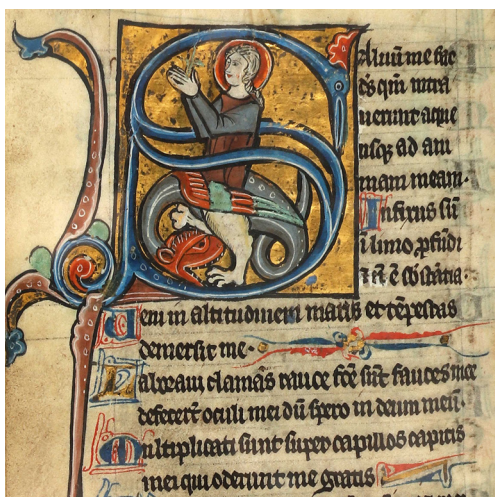 SAluū me fac
ds qm̄ intra
uerunt aque
usq; ad ani
mam meam.
Infixus sū
ī limo ꝓfūdi
⁊ nō ē sbstātia:
Veni in altitudinem maris et tēpestas
demersit me.
Laboraui clamās rauce fcē sūt fauces mee
defecerūt oculi mei dū spero in deum meū.
Multiplicati sunt super capillos capitis
mei qui oderunt me gratis